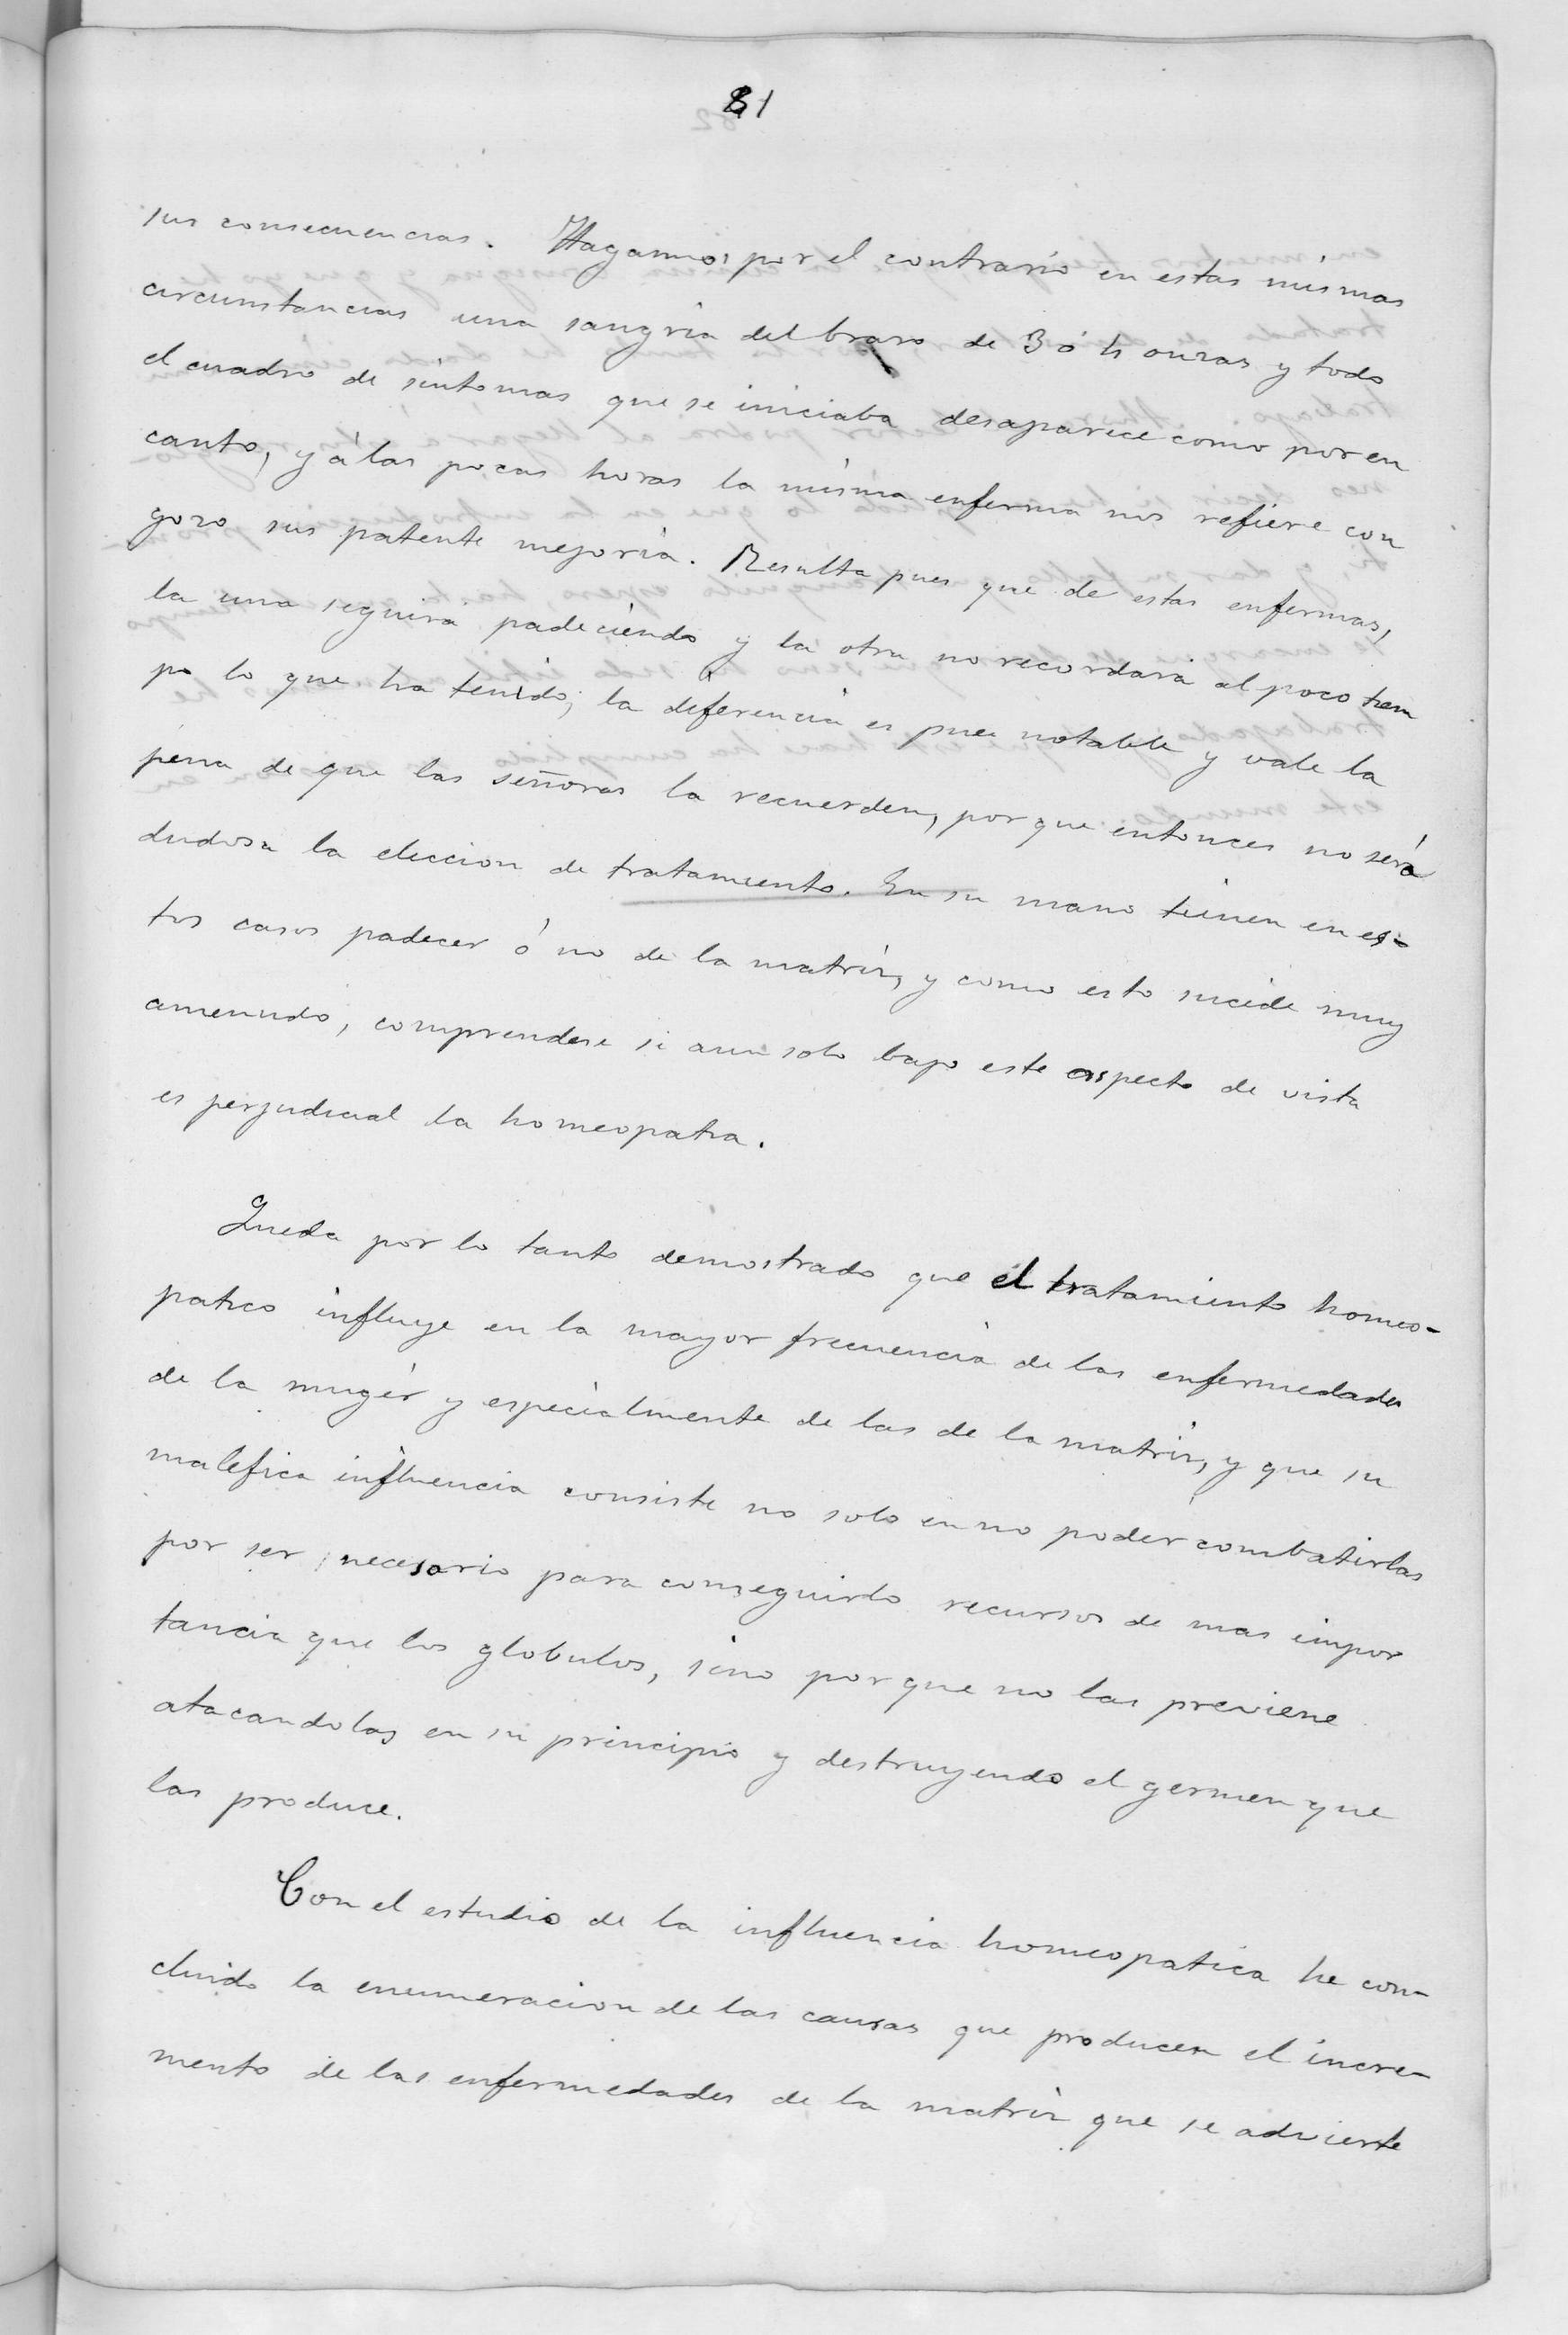 81
sus consecuencias. Hagamos por el contrario en estas mismas
circunstancias una sangria del braso de 3 ó 4 onzas y todo
el cuadro de sintomas que se iniciaba desaparece como por en
canto, y á las pocas horas la misma enferma nos refiere con
gozo sus patente mejoria. Resulta pues que de estas enfermas,
la una seguirá padeciendo y la otra no recordará al poco tiem
po lo que ha tenido; la diferencia es pues notable y vale la
pena de que las señoras la recuerden, por que entonces no será
dudosa la eleccion de tratamiento. En su mano tienen en es-
tos casos padecer ó no de la matriz, y como esto sucede muy
amenudo, comprendese si aun solo bajo este aspecto de vista
es perjudicial la homeopatia.
Queda por lo tanto demostrado que el tratamiento homeo-
patico influye en la mayor frecuencia de las enfermedades
de la muger y especialmente de las de la matriz, y que su
malefica influencia consiste no solo en no poder combatirlas
por ser necesario para conseguirlo recursos de mas impor
tancia que los globulos, sino por que no las previene
atacandolas en su principio y destruyendo el germen que
las produce.
Con el estudio de la influencia homeopatica he con-
cluido la enumeracion de las causas que producen el incre-
mento de las enfermedades de la matriz que se advierte